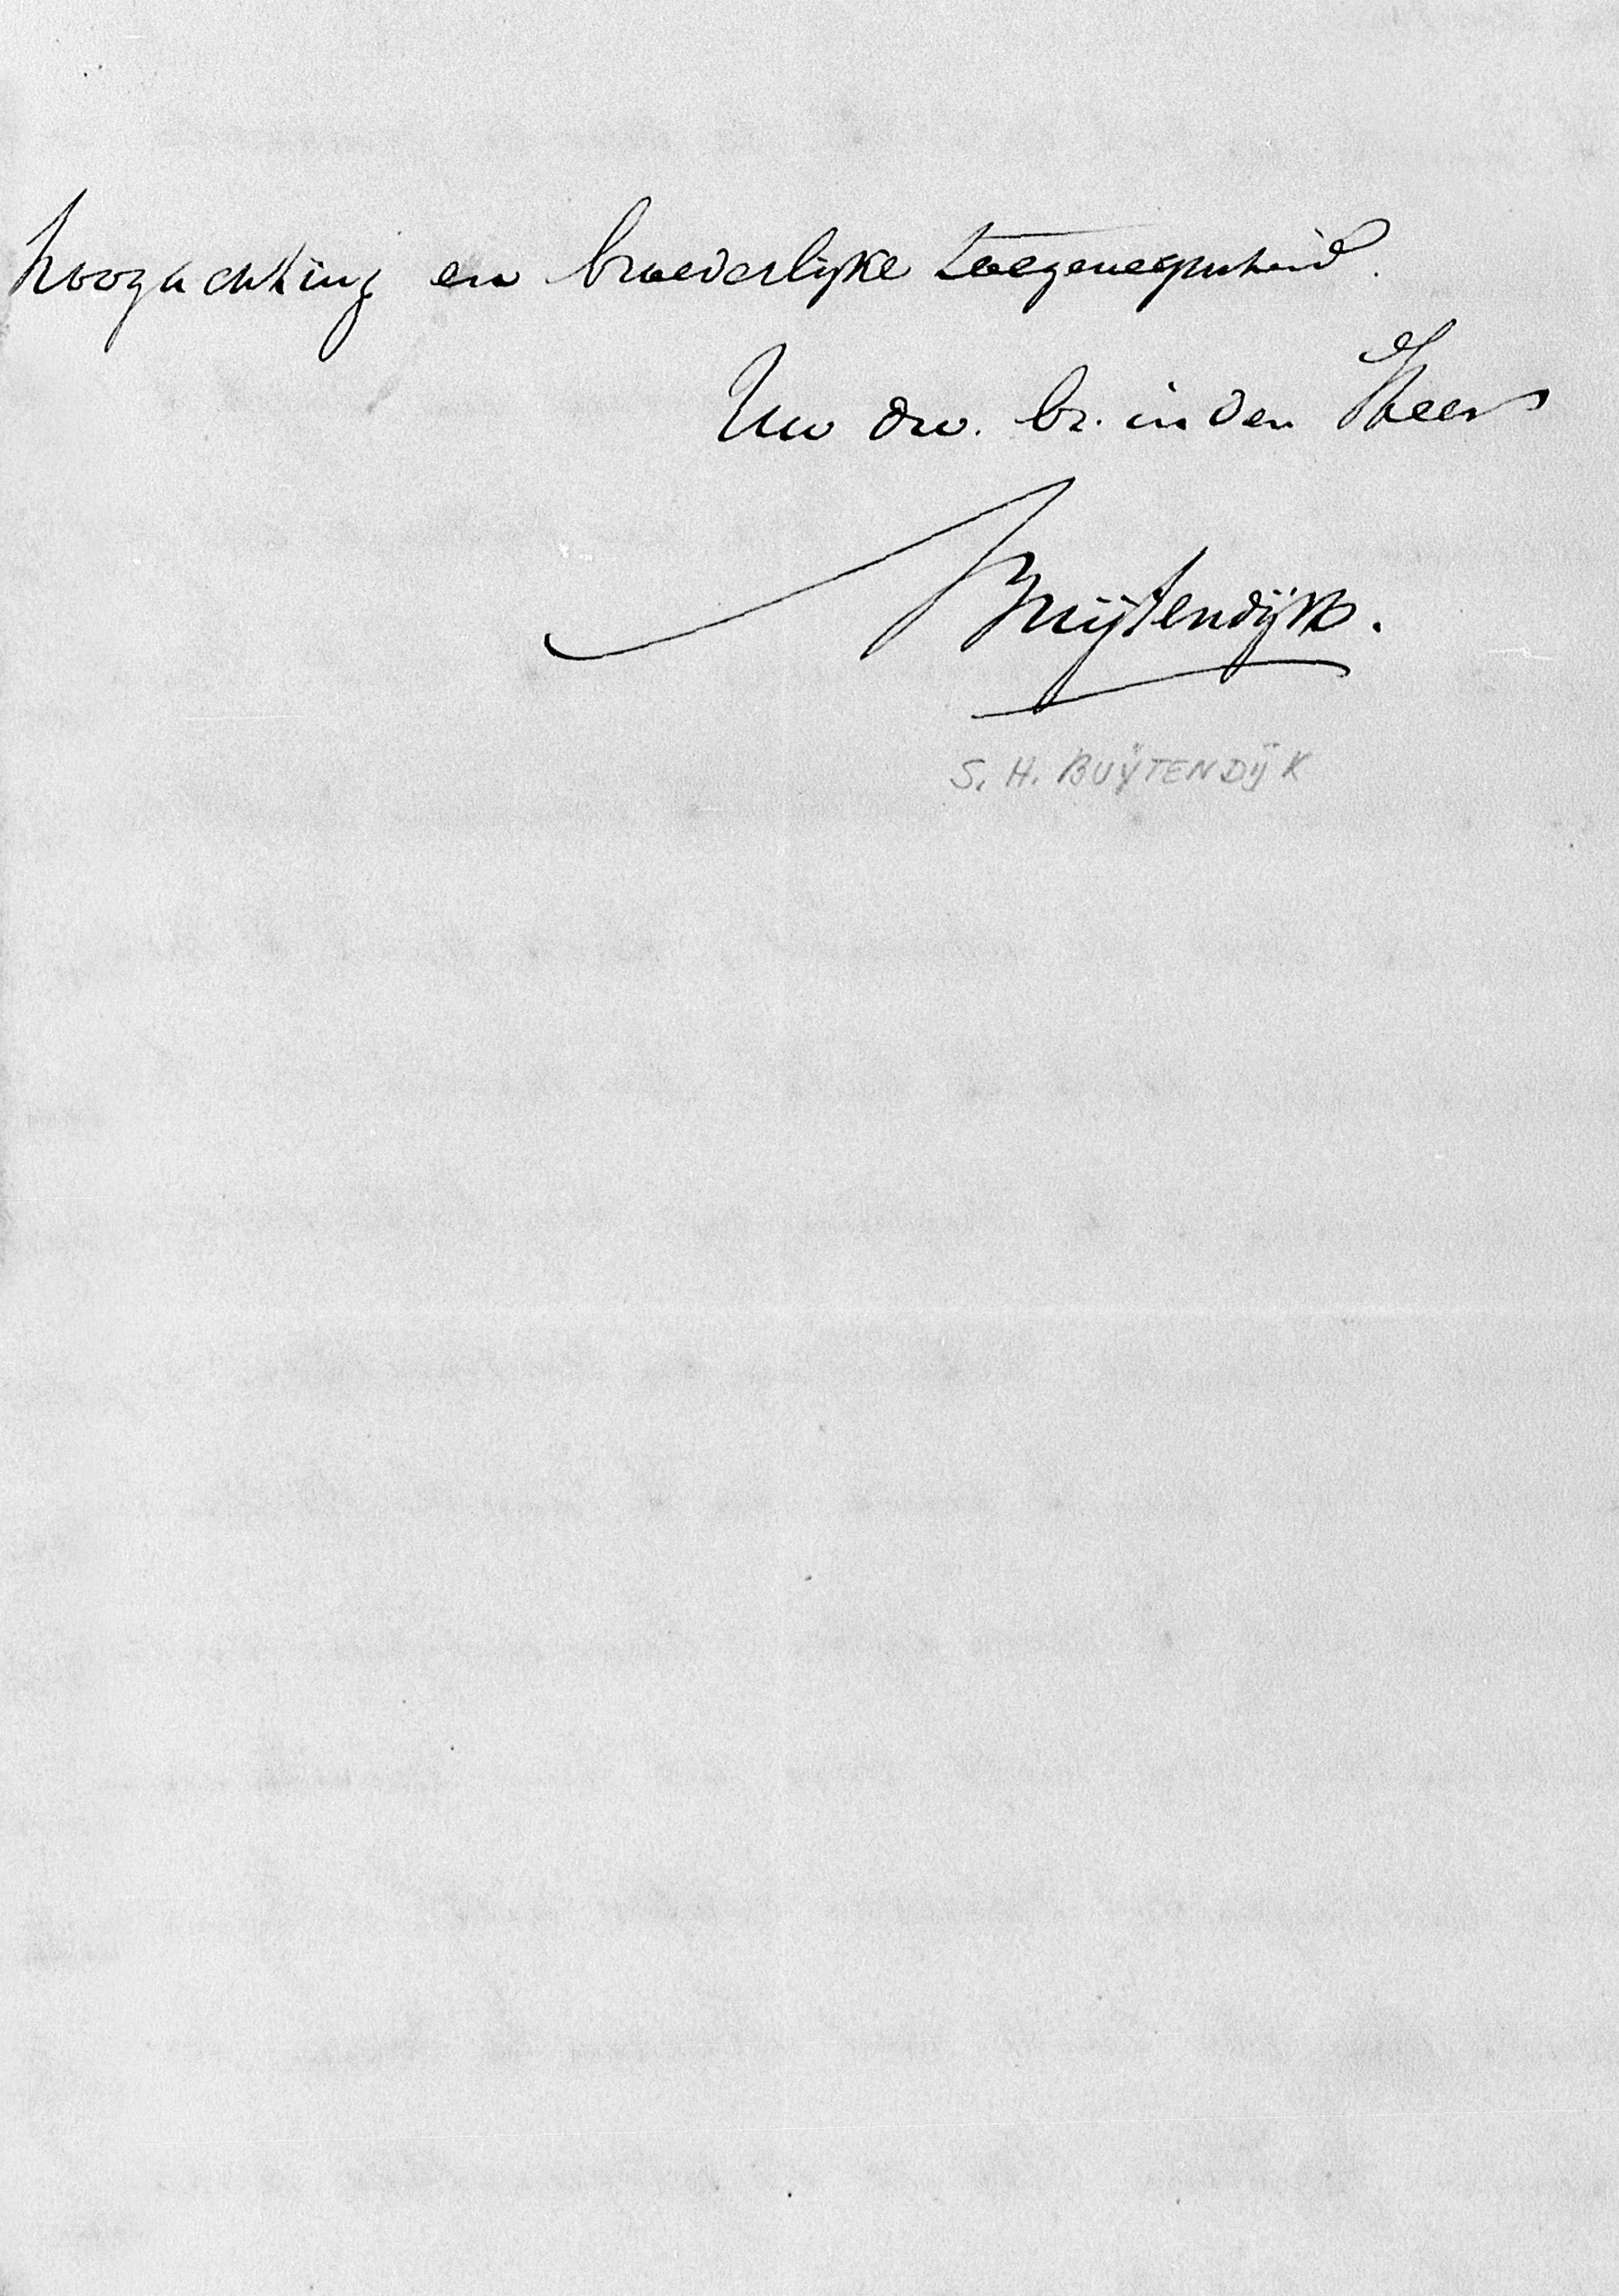 hoogachting en broederlijke toegenegenheid.
Uw dw. br. in den Heer
Buijtendijk.
S. H. BUIJTENDIJK